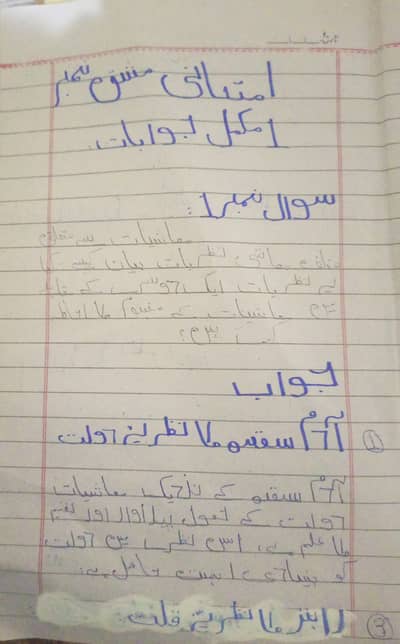 امتحانی مشق نمبر
1 مکمل جوابات
سوال نمبر 1:
معاشیات سے متعلق
نظریات بیان کیجئے کیا
یہ نظریات ایک دوسرے کے
معاشیات کے مفہوم کا احاطہ
کرتے ہیں؟
جواب
① آدم سمتھ کا نظریہ دولت
آدم سمتھ کے نزدیک معاشیات
دولت کے حصول پیداوار اور تقسیم
کا علم ہے۔ اس نظریہ میں دولت
کو بنیادی اہمیت حاصل ہے۔
③ رابنز کا نظریہ قلت: